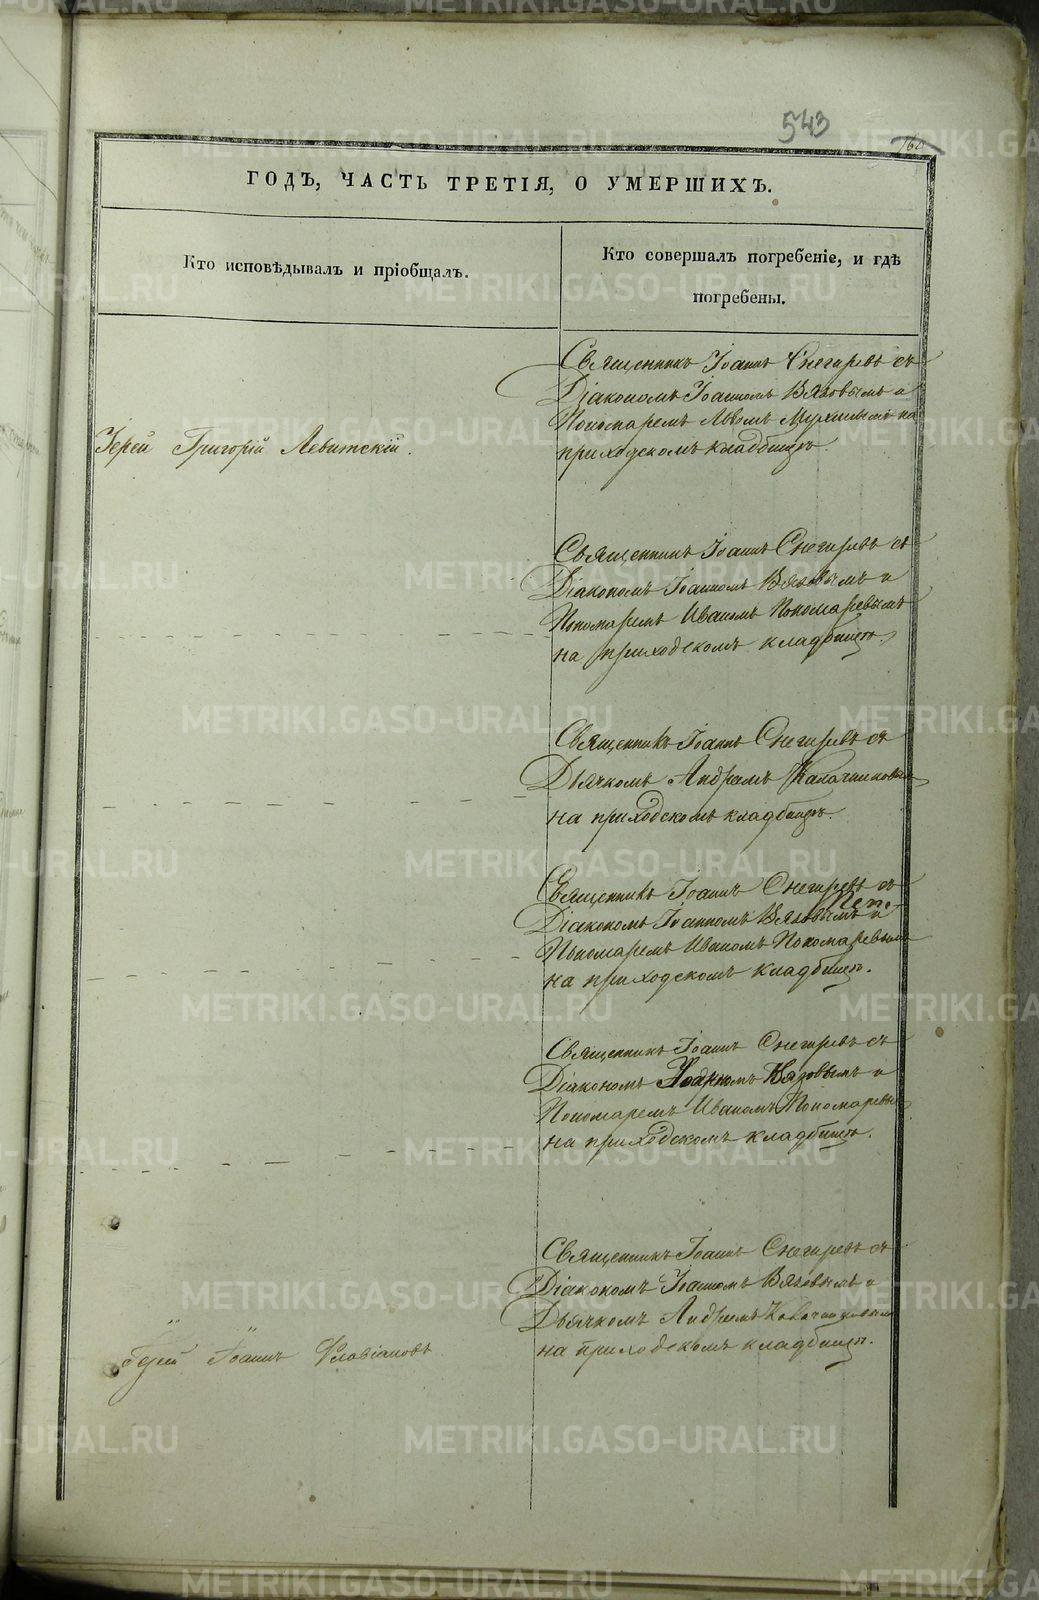 METRIKI.GASO-URAL.RU
543
760
ГОДЪ, ЧАСТЬ ТРЕТІЯ, О УМЕРШИХЪ.
Кто исповѣдывалъ и пріобщалъ.
Кто совершалъ погребеніе, и гдѣ
погребены.
Іерей Григорій Левитскій.
Священникъ Іоаннъ Снегиревъ съ
Діакономъ Іоанномъ Вязовымъ и
Пономаремъ Львомъ Мухинымъ на
приходскомъ кладбищѣ.
Священникъ Іоаннъ Снегиревъ съ
Діакономъ Іоанномъ Вязовымъ и
Пономаремъ Иваномъ Пономаревымъ
на приходскомъ кладбищѣ.
Священникъ Іоаннъ Снегиревъ съ
Дьячкомъ Андреемъ Калачниковымъ
на приходскомъ кладбищѣ.
Священникъ Іоаннъ Снегиревъ съ
Діакономъ Іоанномъ Вязовымъ и
Пономаремъ Иваномъ Пономаревымъ
на приходскомъ кладбищѣ.
Священникъ Іоаннъ Снегиревъ съ
Діакономъ Іоанномъ Вязовымъ и
Пономаремъ Иваномъ Пономаревы
на приходскомъ кладбищѣ.
Іерей Іоаннъ Флавіановъ
Священникъ Іоаннъ Снегиревъ съ
Діакономъ Іоанномъ Вязовымъ и
Дьячкомъ Андреемъ Калачниковымъ
на приходскомъ кладбищѣ.